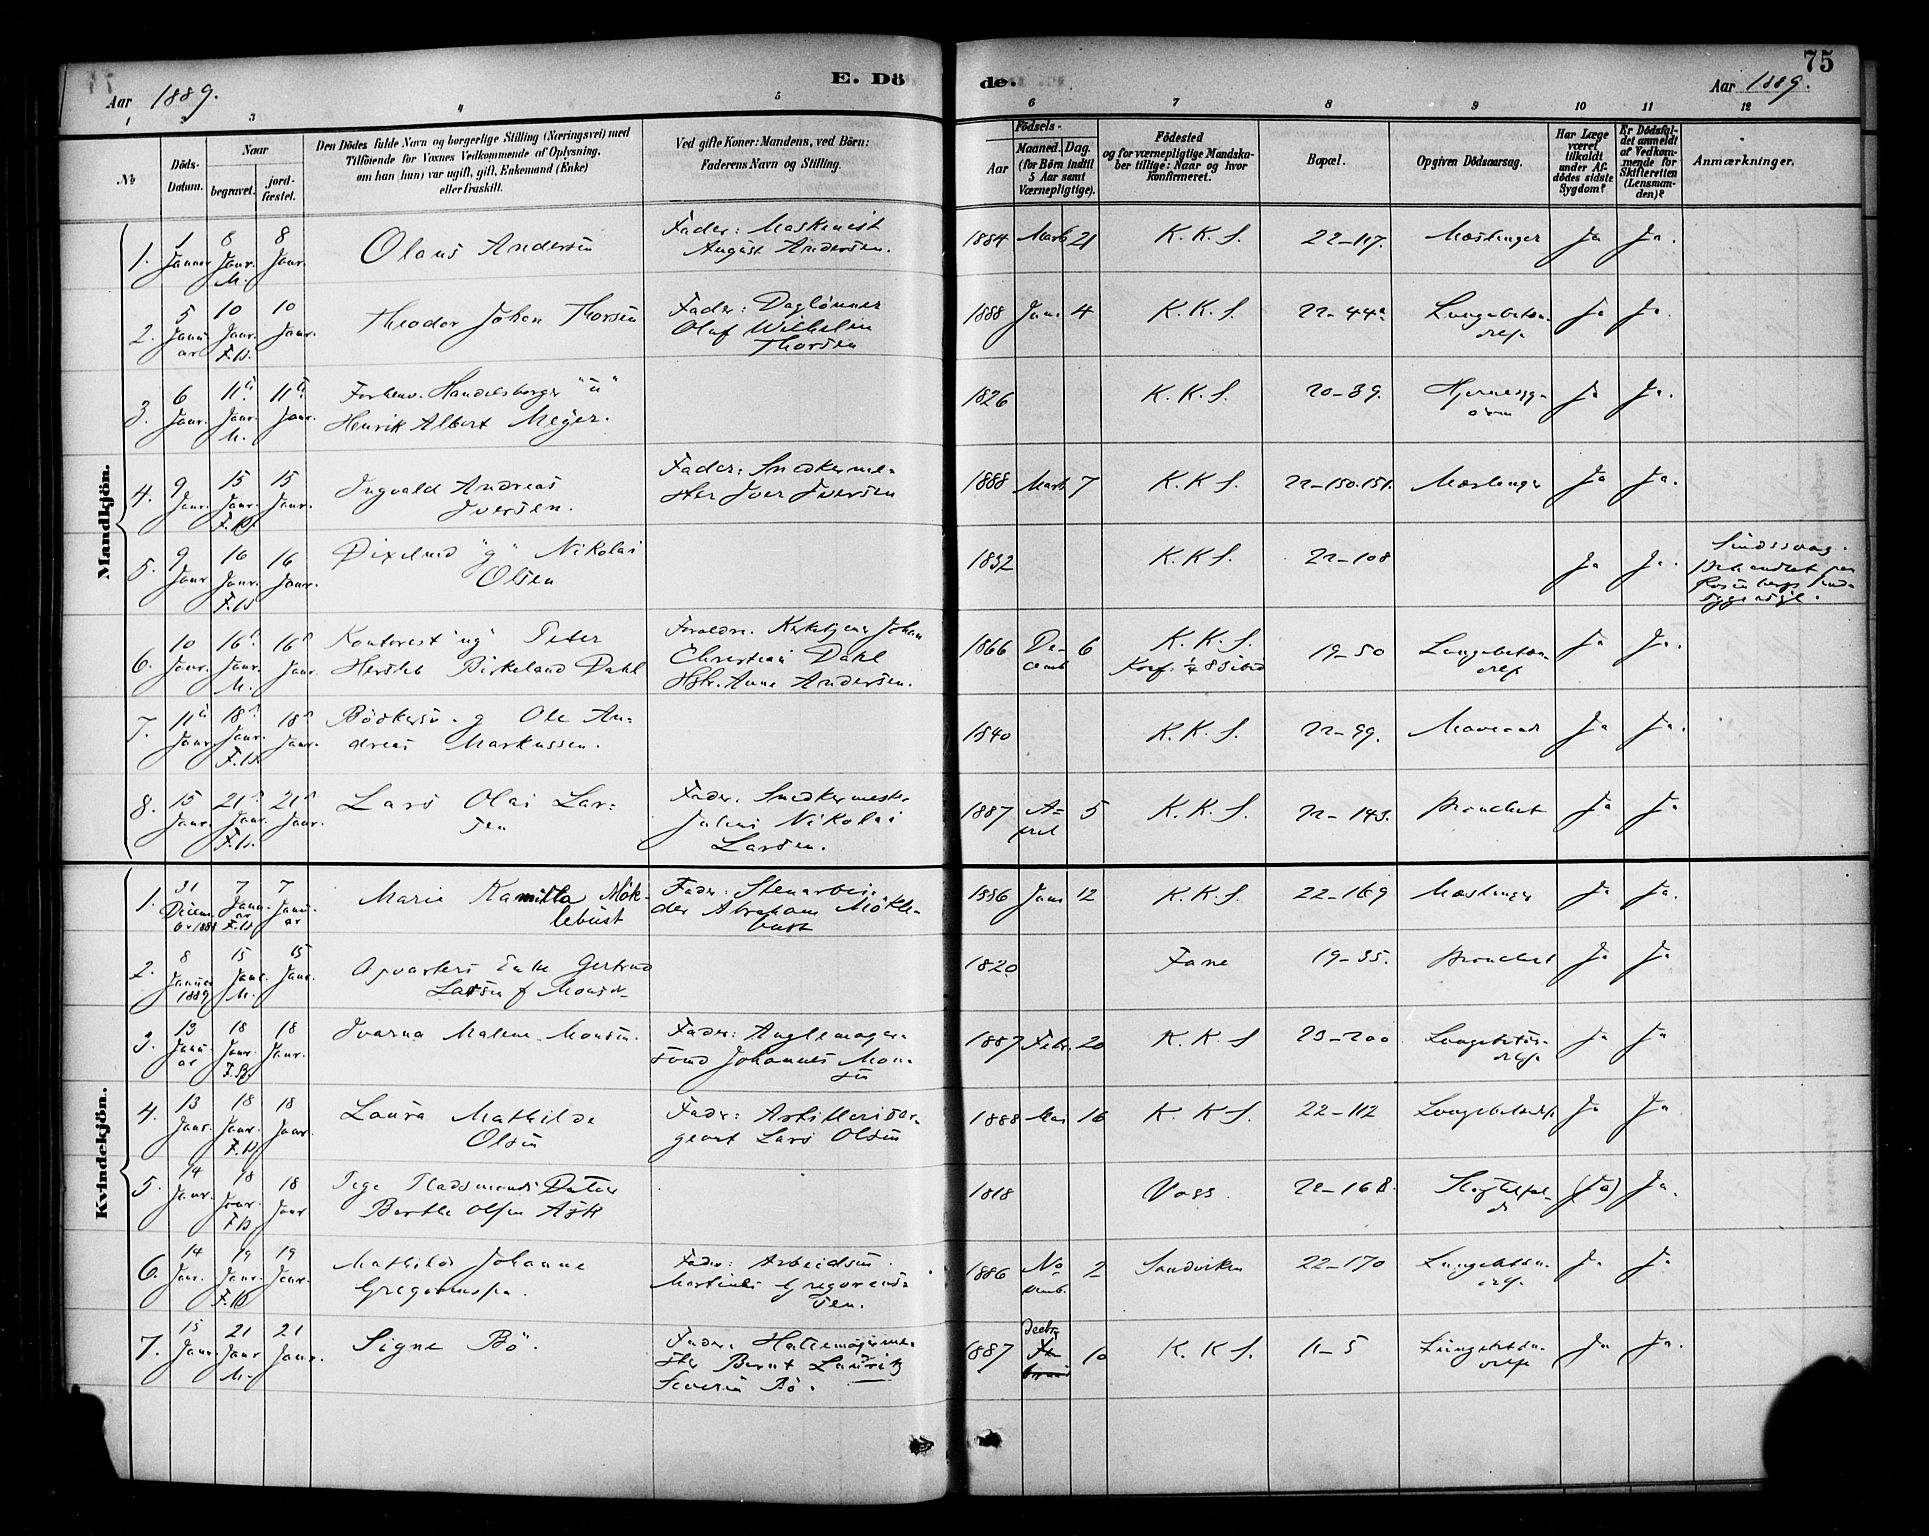 75
Aar 1889.
E. Dö
de.
Aar 1889.
1 2 3 4 5 6 7 8 9 10 11 12
No
Döds-Datum.
Naar
begravet.
jord-fæstet.
Den Dödes fulde Navn og borgerlige Stilling (Næringsvei) med
Tilföiende for Voxnes Vedkommende af Oplysning,
om han (hun) var ugift, gift, Enkemand (Enke)
eller fraskilt.
Ved gifte Koner: Mandens, ved Börn:
Faderens Navn og Stilling.
Födsels-
Aar
Maaned.
Dag.
(for Börn indtil
5 Aar samt
Værnepligtige).
Födested
og for værnepligtige Mandska-
ber tillige: Naar og hvor
konfirmeret.
Bopæl.
Opgiven Dödsaarsag.
Har Læge
været
tilkaldt
under Af-
dödes sidste
Sygdom?
Er Dödsfal-
det anmeldt
af Vedkom-
mende for
Skifteretten
(Lensman-
den)?
Anmærkninger.
Mandkjön.
1. 1 Januar 8 Janr. M. 8 Janr. Olaus Andersen Fader: Maskinist
August Andersen. 1884 Marts 21 K. K. S. 22-117. Mæslinger Ja Ja.
2. 5 Januar 10 Janr. F.B. 10 Janr. Theodor Johan Thorsen Fader: Daglönner
Olaf Wilhelm
Thorsen 1888 Janr 4 K. K. S. 22-44a Lungebetændelse Ja Ja.
3. 6 Janr. 11 Janr. M. 11 Janr. Forhenv. Handelsborger
Henrik Albert Meyer. 1826 K. K. S. 20-39. Hjernesygdom Ja Ja.
4. 9 Janr. 15 Janr. F.B. 15 Janr. Ingvald Andreas
Iversen. Fader: Snedkerme-
ster Iver Iversen 1888 Marts 7 K. K. S. 22-150.151. Mæslinger Ja Ja.
5. 9 Janr 16 Janr. F.B. 16 Janr. "g" Nikolai
Olsen 1832 K. K. S. 22-108 Ja Ja. Sindssvag.
Behandlet paa
Rosenbergs Sinds-
sygeasyl.
6. 10 Janr. 16 Janr. M. 16 Janr. Kontorist "ug" Peter
Hersleb Birkeland Dahl Forældre. Kirketjener Johan
Christian Dahl
Hstr. Anna Andersen. 1866 December 6 K. K. S. 19-50 Lungebetændelse Ja Ja.
7. 11 Janr 18 Janr. F.B. 18 Janr. Bödkersv. g Ole An-
dreas Markussen. 1840 K. K. S. 22-99. Ja Ja.
8. 15 Janr. 21 Janr. F.B. 21 Janr. Lars Olai Lar-
sen Fader. Snedkermester
Julius Nikolai
Larsen. 1887 April 5 K. K. S. 22-143. Bronchit Ja Ja
Kvindekjön.
1. 31 Decem-
br 1888 7 Januar F.B. 7 Januar Marie Kamilla Møk-
lebust Fader: Stenarbei-
der Abraham Møkle-
bust 1886 Janr 12 K. K. S. 22-169 Mæslinger Ja Ja.
2. 8 Januar 1889 15 Janr. M. 15 Janr. Enke Gertrud
Larsen f Monsdr. 1820 Fane 19-35. Bronchit Ja Ja
3. 13 Januar 18 Janr. F.B. 18 Janr. Ivarna Malene Monsen. Fader:
Johannes Mon-
sen 1887 Febr. 20 K. K. S 23-200 Lungebetændelse Ja Ja
4. 13 Janr. 18 Janr. F.B. 18 Janr. Laura Mathilde
Olsen Fader: Artillerisersgeant Lars Olsen 1888 Mai 16 K. K. S. 22-112 Lungebetændelse Ja Ja
5. 14 Janr. 18 Janr. F.B. 18 Janr Pige Pladsmands Datter
Berthe Olsen 1818 Voss. 22-168. (Ja) Ja.
6. 14 Janr. 19 Janr. F.B. 19 Janr. Mathilde Johanne
Gregoriussen. Fader: Arbeidsm.
Martinus Gregorius-
sen. 1886 Novemb. 2 Sandviken 22-170 Lungebetændelse Ja Ja
7. 15 Janr. 21 Janr M. 21 Janr. Signe Bö Fader.
Bernt
Severin Bö. 1887 Decbr 10 K. K. S. 11-5 Lungebetændelse Ja Ja.